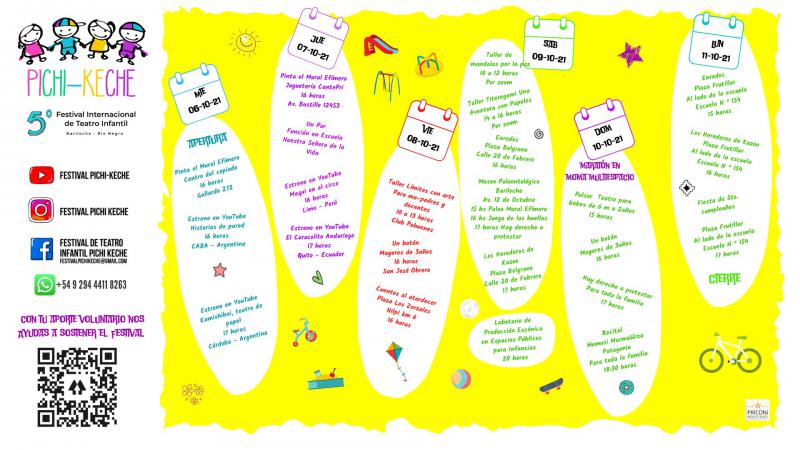 PICHI-KECHE
5°
Festival Internacional
de Teatro Infantil
Bariloche - Río Negro
FESTIVAL PICHI-KECHE
FESTIVAL PICHI KECHE
FESTIVAL DE TEATRO
INFANTIL PICHI KECHE
FESTIVALPICHIKECHE@GMAIL.COM
+54 9 294 4411 8263
CON TU APORTE VOLUNTARIO NOS
AYUDAS A SOSTENER EL FESTIVAL
MIE
06-10-21
APERTURA
Pinta el Mural Efímero
Centro del copiado
16 horas
Gallardo 272
Estreno en YouTube
Historias de pared
16 horas
CABA - Argentina
Estreno en YouTube
Kamishibai, teatro de
papel
17 horas
Córdoba - Argentina
JUE
07-10-21
Pinta el Mural Efímero
Juguetería CantePri
16 horas
Av. Bustillo 12453
Un Par
Función en Escuela
Nuestra Señora de la
Vida
Estreno en YouTube
Maqui en el circo
16 horas
Lima - Perú
Estreno en YouTube
El Caracolito Andariego
17 horas
Quito - Ecuador
VIE
08-10-21
Taller Límites con arte
Para ma-padres y
docentes
10 a 13 horas
Club Pehuenes
Un botón
Mayores de 3años
16 horas
San José Obrero
Cuentos al atardecer
Plaza Los Zorzales
Ñilpi km 6
16 horas
SAB
09-10-21
Taller de
mandalas por la paz
10 a 12 horas
Por zoom
Taller Titeregami Una
Aventura con Papeles
14 a 16 horas
Por zoom
Enredos
Plaza Belgrano
Calle 20 de Febrero
16 horas
Museo Paleontológico
Bariloche
Av. 12 de Octubre
15 hs Paleo Mural Efímero
16 hs Juego de las huellas
17 horas Hay derecho a
protestar
Los Herederos de
Kazon
Plaza Belgrano
Calle 20 de Febrero
17 horas
Labotario de
Producción Escénica
en Espacios Públicos
para infancias
20 horas
DOM
10-10-21
MARATÓN EN
MOMA MULTIESPACIO
Pulsar Teatro para
bebés de 6 m a 2años
15 horas
Un botón
Mayores de 3años
16 horas
Hay derecho a protestar
Para toda la familia
17 horas
Recital
Mamusi Mormobiza
Patagonia
Para toda la familia
18:30 horas
LUN
11-10-21
Enredos
Plaza Frutillar
Al lado de la escuela
Escuela N ° 154
15 horas
Los Herederos de Kazon
Plaza Frutillar
Al lado de la escuela
Escuela N ° 154
16 horas
Fiesta de 5to.
cumpleaños
Plaza Frutillar
Al lado de la escuela
Escuela N ° 154
17 horas
CIERRE
PIRCONI